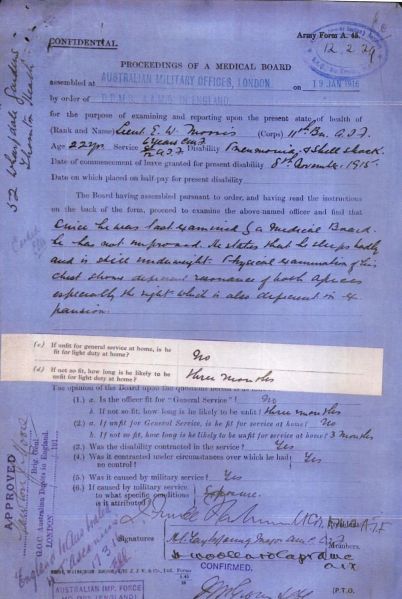 CONFIDENTIAL
Army Form A. 45.
12.2.29
PROCEEDINGS OF A MEDICAL BOARD
assembled at AUSTRALIAN MILITARY OFFICES, LONDON. on 19 JAN 1916
by order of D.D.M.S., A.A.M.S. IN ENGLAND.
for the purpose of examining and reporting upon the present state of health of
(Rank and Name) Lieut E. W. Morris (Corps) 11th Bn. A.I.F.
Age 22 yrs. Service Disability Pneumonia & Shell shock
Date of commencement of leave granted for present disability 8th November 1915
Date on which placed on half-pay for present disability
The Board having assembled pursuant to order, and having read the instructions
on the back of the form, proceed to examine the above-named officer and find that
Since he was last examined by a Medical Board
he has not improved. He states that he sleeps badly
and is still underweight. Physical examination of his
chest shows deficient resonance of both apices
especially the right which is also deficient in ex
pansion.
(c) If unfit for general service at home, is he
fit for light duty at home? No
(d) If not so fit, how long is he likely to be
unfit for light duty at home? three months
The opinion of the Board upon the questions
(1.) a. Is the officer fit for "General Service"? No
b. If not so fit, how long is he likely to be unfit? three months
(2.) a. If unfit for General Service, is he fit for service at home? No
b. If not so fit, how long is he likely to be unfit for service at home? 3 months
(3.) Was the disability contracted in the service? Yes
(4.) Was it contracted under circumstances over which he had
no control? Yes
(5.) Was it caused by military service? Yes
(6.) If caused by military service
to what specific conditions
is it attributed? Exposure.
Members.
CONFIRMED.
[P.T.O.
52 Wharfdale Gardens
Thornton Heath
APPROVED
Brig. Genl.
G.O.C. Australian Troops in England.
AUSTRALIAN IMP. FORCE